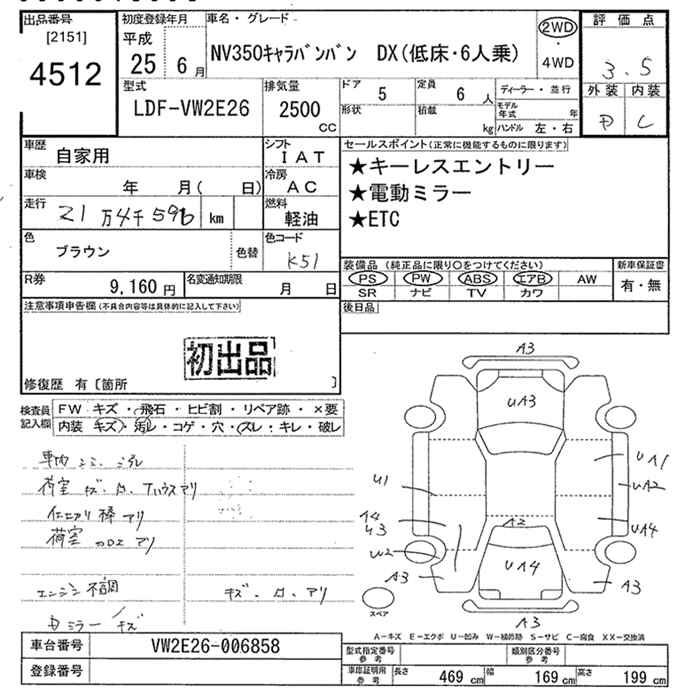 出品番号
[2151]
4512
初度登録年月
平成
25 6 月
車名・グレード
NV350キャラバンバン DX(低床・6人乗)
2WD
・
4WD
評価点
3.5
外装 内装
D C
型式
LDF-VW2E26
排気量
2500
CC
ドア
5
形状
定員
6 人
積載
kg
ディーラー・並行
モデル年式 年
ハンドル 左・右
車歴
自家用
シフト
IAT
車検
年 月( 日)
冷房
AC
走行
21 万4千596 km
燃料
軽油
色
ブラウン
色替
色コード
K51
R券
9,160 円
名変通知期限
月 日
セールスポイント(正常に機能するものに限ります)
★キーレスエントリー
★電動ミラー
★ETC
装備品(純正品に限り〇をつけてください)
PS PW ABS エアB AW
SR ナビ TV カワ
新車保証書
有・無
後日品
注意事項申告欄(不具合内容等は具体的に記入して下さい)
初出品
修復歴 有〔箇所 〕
検査員記入欄
FW キズ・飛石・ヒビ割・リペア跡・×要
内装 キズ・汚レ・コゲ・穴・スレ・キレ・破レ
車内 シミ
荷室 キズ
アリ
仕切リ棒 アリ
荷室 アリ
エンジン不調
キズ アリ
ミラー キズ
A3
UA3
U1
UA1
UA2
A4
U3
A2
UA4
U2
A3
UA4
A3
A3
スペア
A-キズ E-エクボ U-凹み W-補修跡 S-サビ C-腐食 XX-交換済
車台番号
VW2E26-006858
登録番号
型式指定番号 参考
類別区分番号 参考
車庫証明用 参考
長さ 469 cm 幅 169 cm 高さ 199 cm